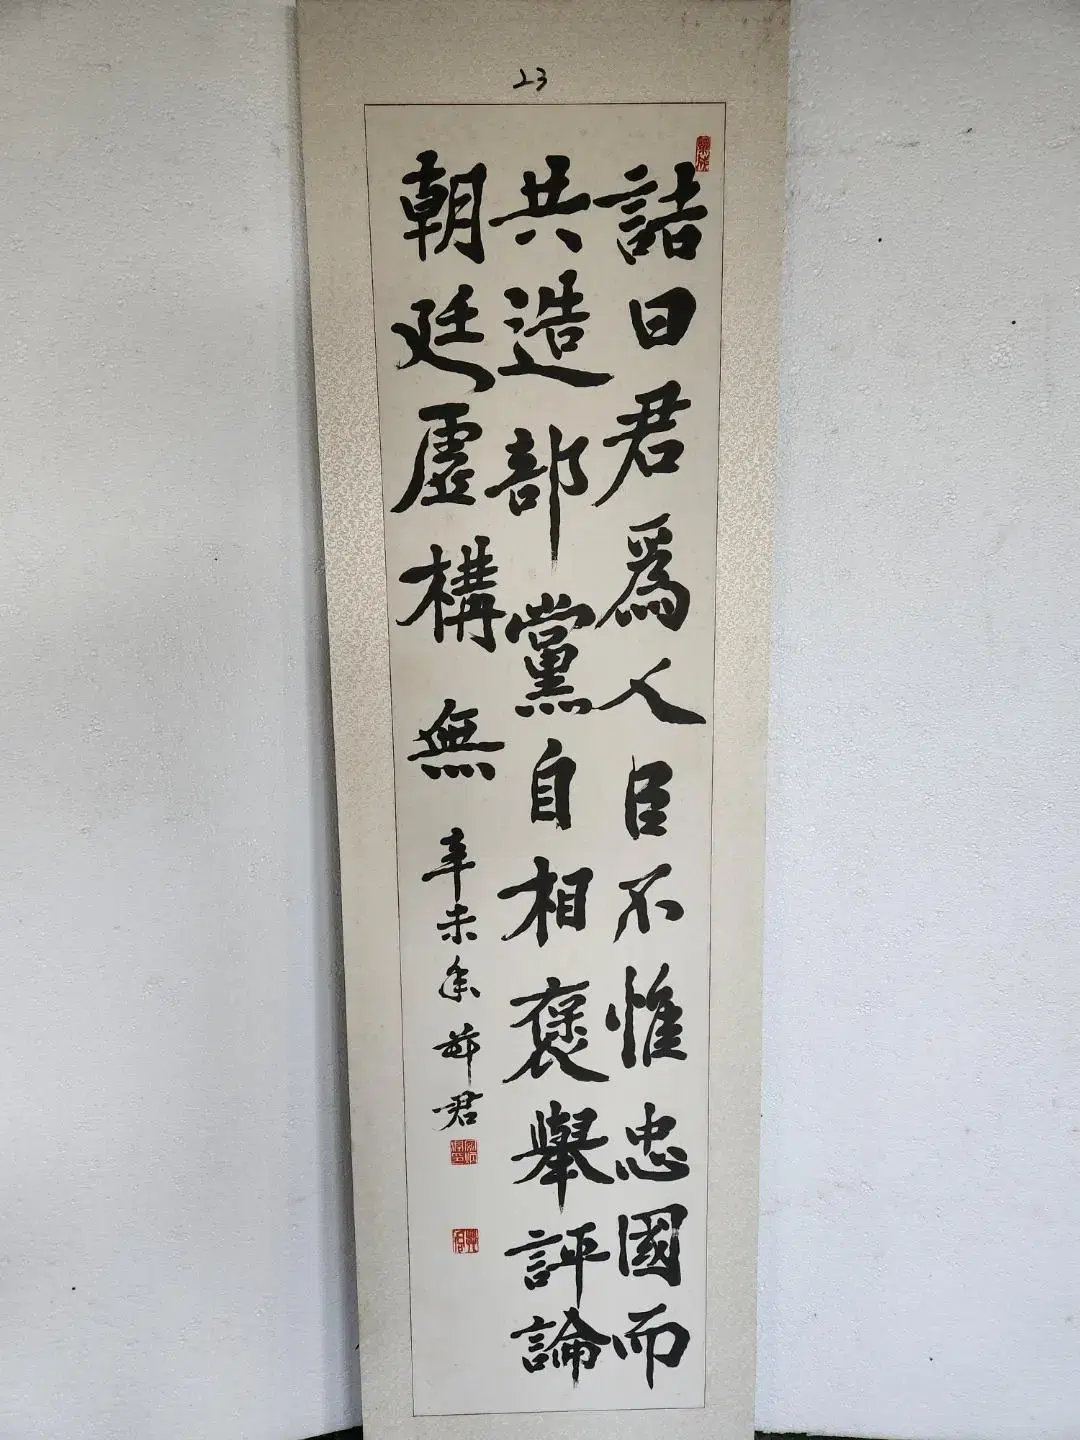 23
詰曰君爲人臣不惟忠國而
共造部黨自相褒舉評論
朝廷虛構無
辛未年
君